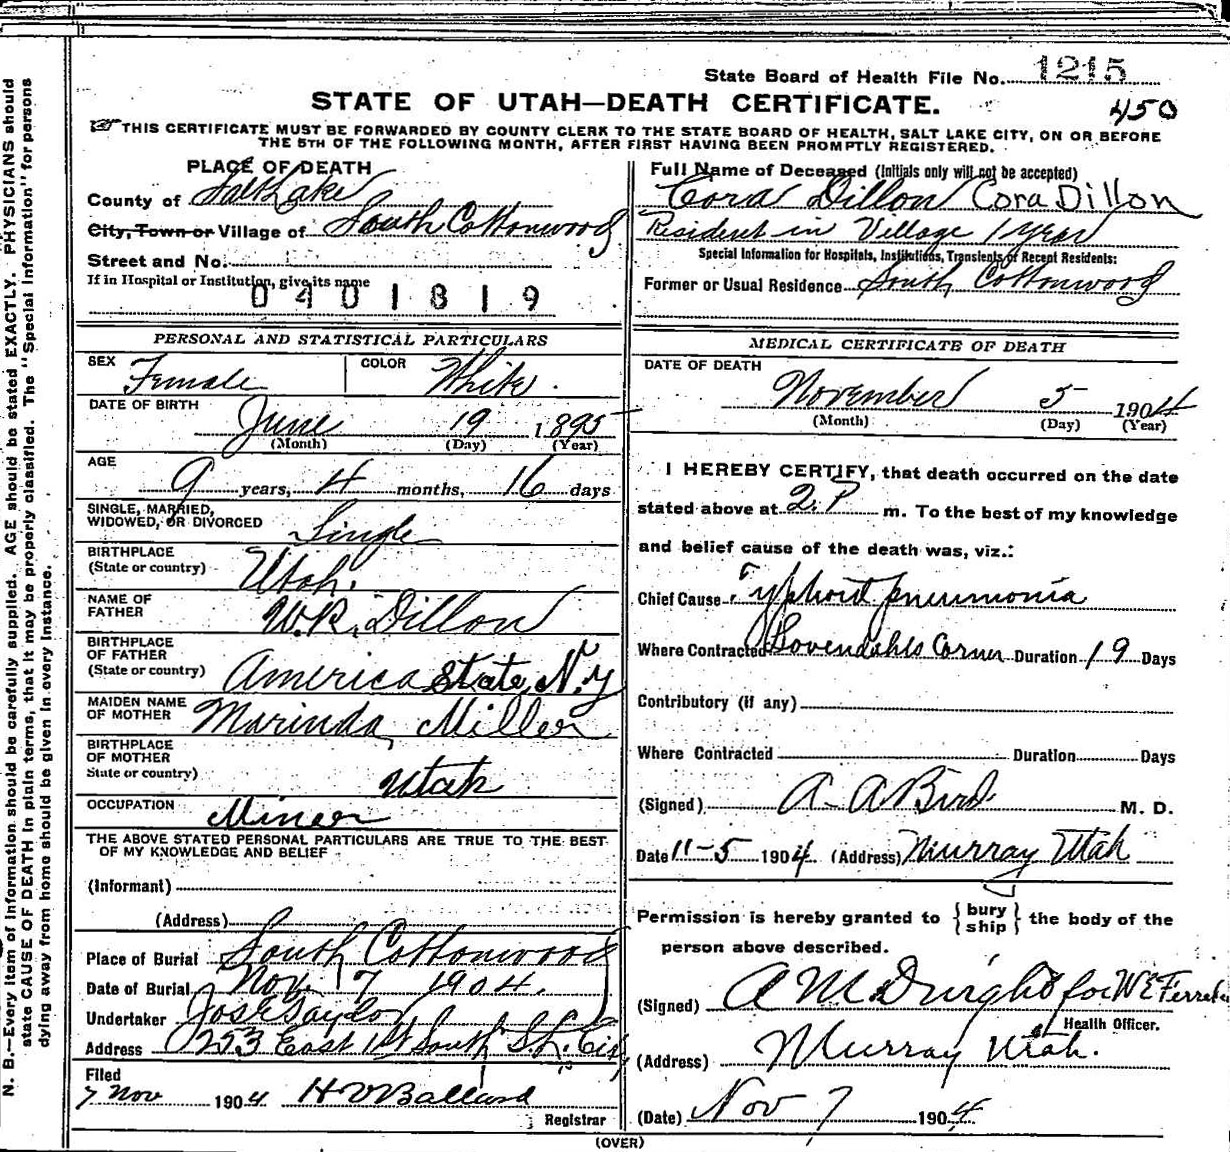 State Board of Health File No. 1215
STATE OF UTAH—DEATH CERTIFICATE.
450
THIS CERTIFICATE MUST BE FORWARDED BY COUNTY CLERK TO THE STATE BOARD OF HEALTH, SALT LAKE CITY, ON OR BEFORE
THE 5TH OF THE FOLLOWING MONTH, AFTER FIRST HAVING BEEN PROMPTLY REGISTERED.
PLACE OF DEATH
County of Salt Lake
City, Town or Village of South Cottonwood
Street and No.
If in Hospital or Institution, give its name
0401819
Full Name of Deceased (Initials only will not be accepted)
Cora Dillon Cora Dillon
Resident in Village 1 year
Special Information for Hospitals, Institutions, Transients or Recent Residents:
Former or Usual Residence South Cottonwood
PERSONAL AND STATISTICAL PARTICULARS
SEX Female COLOR White.
DATE OF BIRTH
June 19 1895
(Month) (Day) (Year)
AGE
9 years, 4 months, 16 days
SINGLE, MARRIED,
WIDOWED, OR DIVORCED Single
BIRTHPLACE
(State or country) Utah.
NAME OF
FATHER W.R. Dillon
BIRTHPLACE
OF FATHER
(State or country) America State, N.Y
MAIDEN NAME
OF MOTHER Marinda Miller
BIRTHPLACE
OF MOTHER
State or country) Utah
OCCUPATION Miner
THE ABOVE STATED PERSONAL PARTICULARS ARE TRUE TO THE BEST
OF MY KNOWLEDGE AND BELIEF
(Informant)
(Address)
Place of Burial South Cottonwood
Date of Burial Nov. 7 1904.
Undertaker Jos E Taylor
Address 253 East 1st South S.L. City
Filed
7 Nov 1904 H V Ballard
Registrar
MEDICAL CERTIFICATE OF DEATH
DATE OF DEATH
November 5 1904
(Month) (Day) (Year)
I HEREBY CERTIFY, that death occurred on the date
stated above at 2.P m. To the best of my knowledge
and belief cause of the death was, viz.:
Chief Cause Typhoid pneumonia
Where Contracted Lovendahls Corner Duration 19 Days
Contributory (if any)
Where Contracted Duration Days
(Signed) A. A Bird M. D.
Date 11-5 1904. (Address) Murray Utah
Permission is hereby granted to { bury
ship } the body of the
person above described.
(Signed) A M Dwight for W E Ferre
Health Officer.
(Address) Murray Utah.
(Date) Nov 7 1904.
(OVER)
N. B.—Every item of information should be carefully supplied. AGE should be stated EXACTLY. PHYSICIANS should
state CAUSE OF DEATH in plain terms, that it may be properly classified. The "Special Information" for persons
dying away from home should be given in every instance.